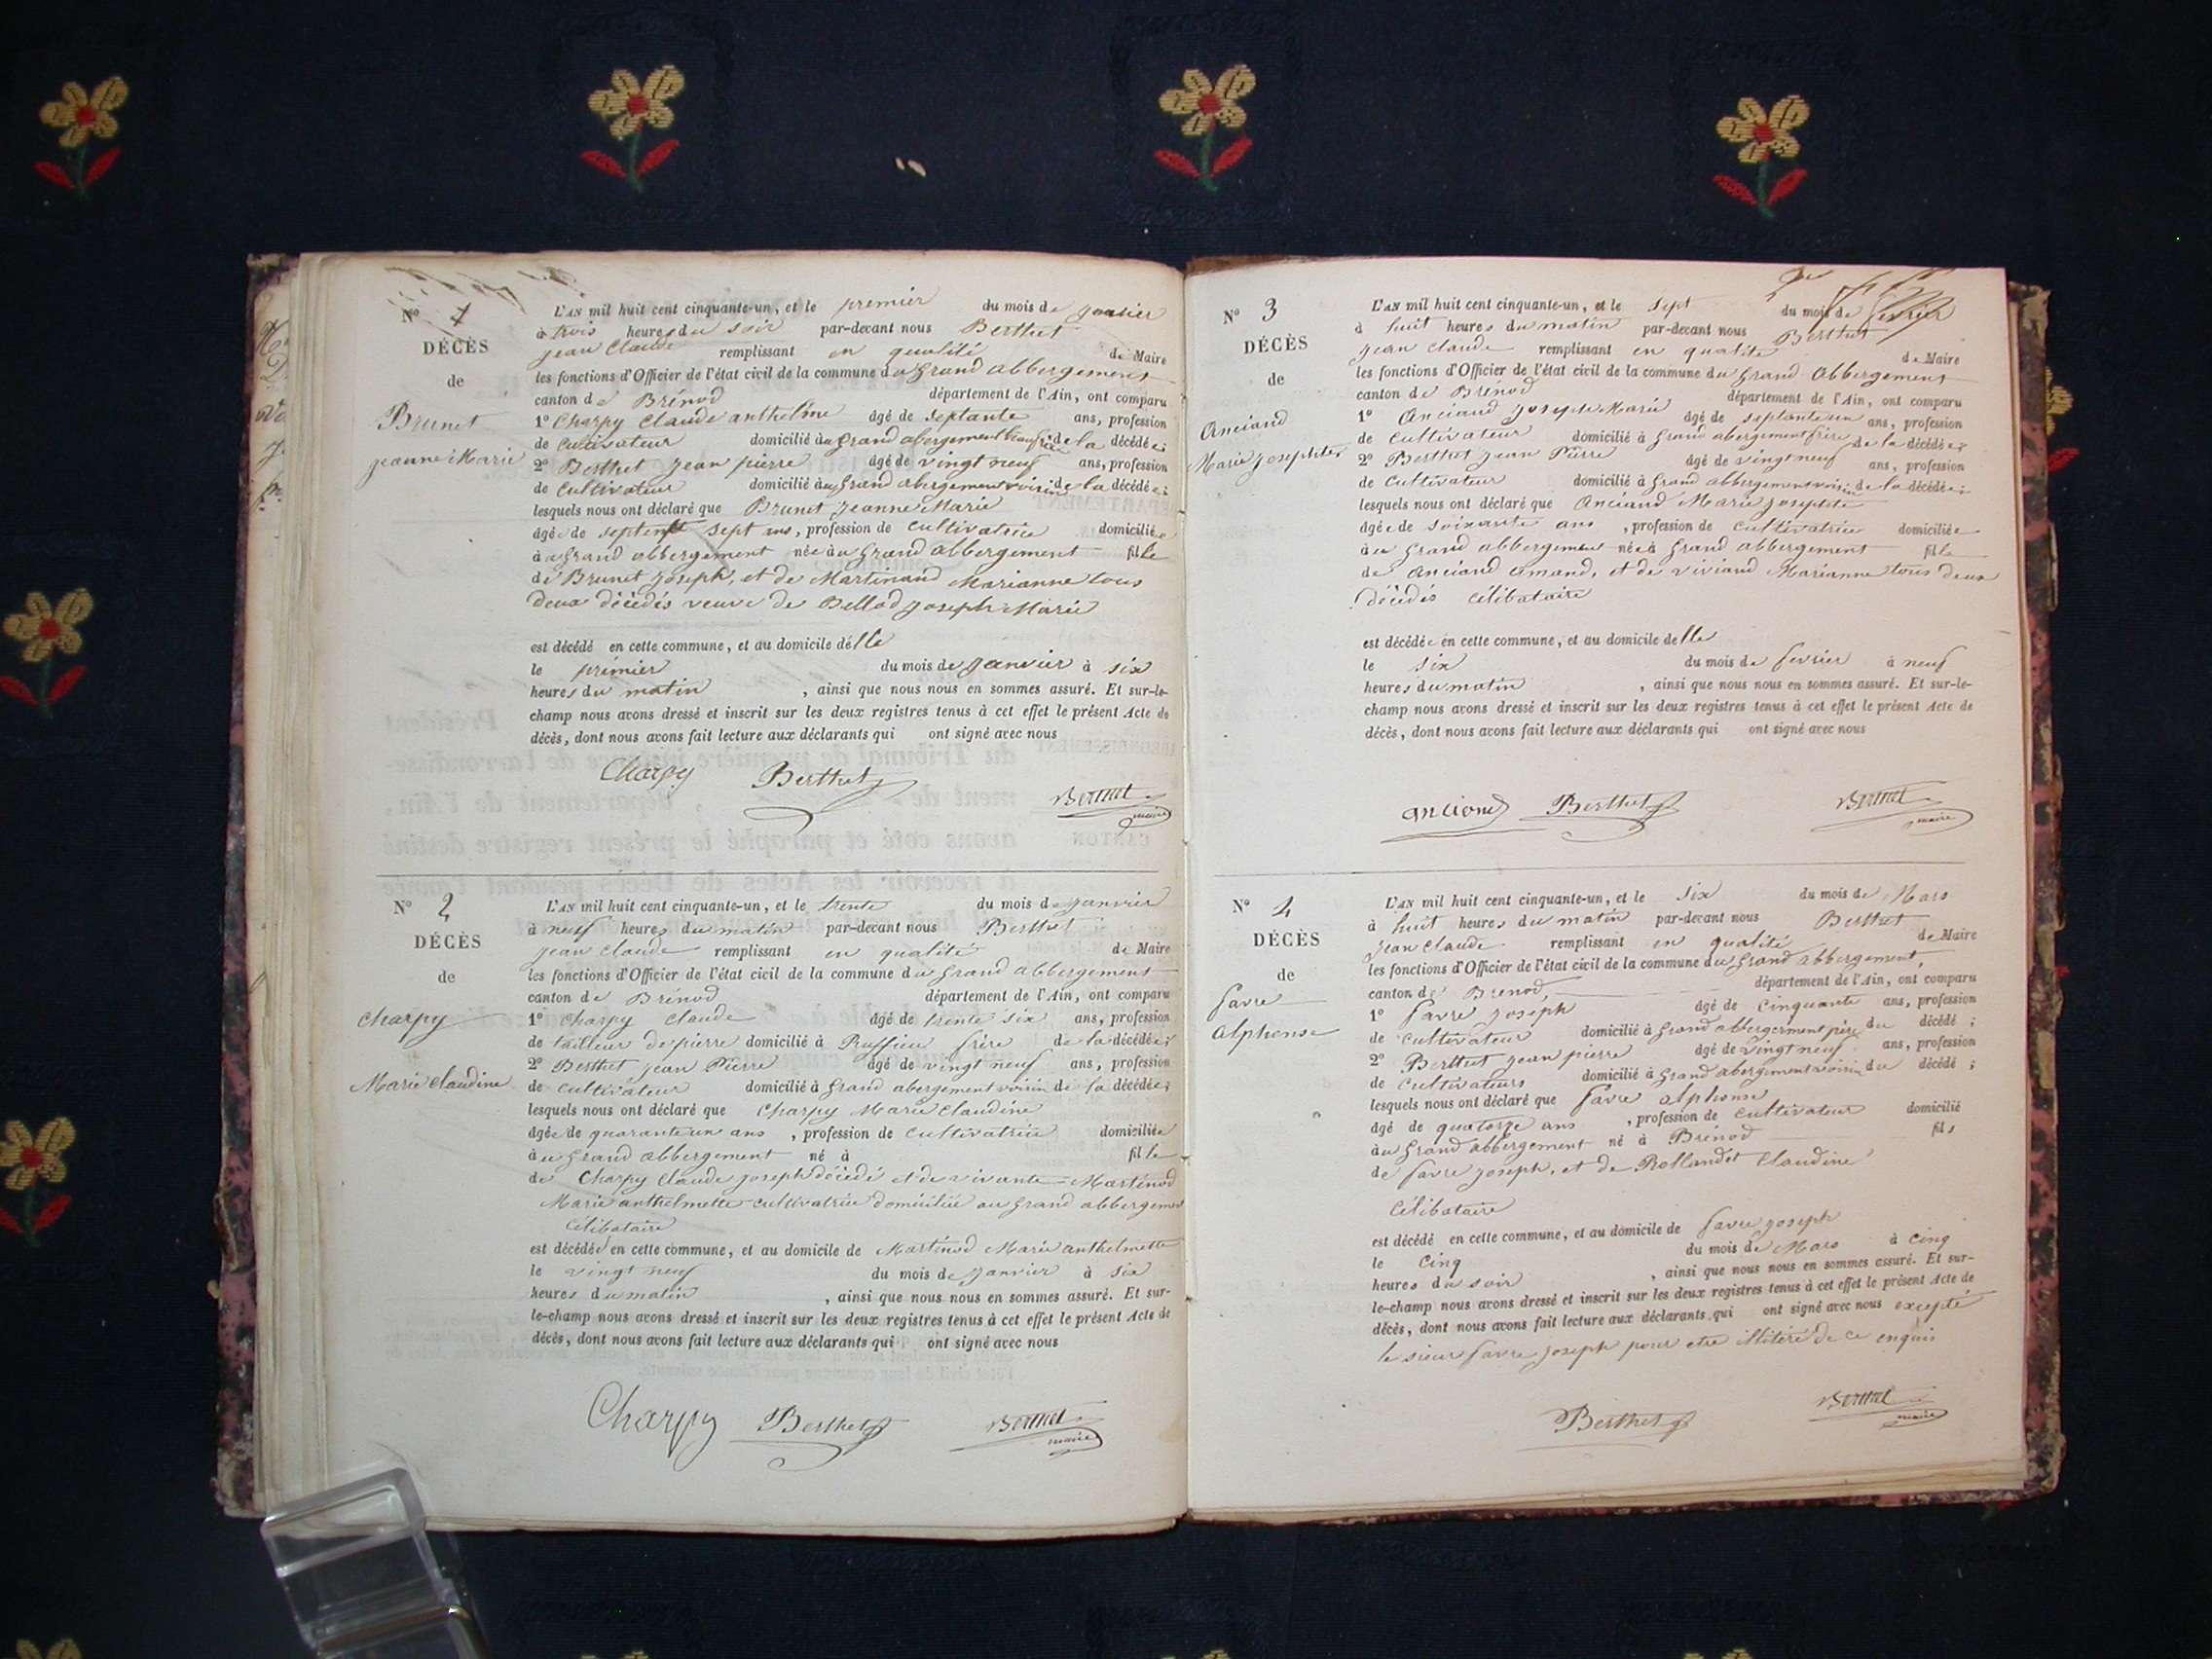 N° 1
DÉCÈS
de
Brunet
jeanne Marie
L'AN mil huit cent cinquante-un, et le premier du mois de janvier
à trois heures du soir par-devant nous Berthet
jean Claude remplissant en qualité de Maire
les fonctions d'Officier de l'état civil de la commune du grand abbergement
canton de Brénod département de l'Ain, ont comparu
1° Charpy Claude anthelme âgé de septante ans, profession
de Cultivateur domicilié au grand abergement beaufrère de la décédée;
2° Berthet jean pierre âgé de vingt neuf ans, profession
de Cultivateur domicilié au grand abergement voisin de la décédée;
lesquels nous ont déclaré que Brunet jeanne Marie
âgée de sept ans, profession de cultivatrice domiciliée
à u grand abbergement née à u grand abbergement fille
de Brunet joseph, et de Martinand Marianne tous
deux décédés veuve de Bellod joseph Marie
est décédé en cette commune, et au domicile de lle
le prémier du mois de janvier à six
heures du matin , ainsi que nous nous en sommes assuré. Et sur-le-
champ nous avons dressé et inscrit sur les deux registres tenus à cet effet le présent Acte de
décès, dont nous avons fait lecture aux déclarants qui ont signé avec nous
Charpy Berthet Berthet
maire
N° 2
DÉCÈS
de
Charpy
Marie Claudine
L'AN mil huit cent cinquante-un, et le trente du mois de janvier
à neuf heures du matin par-devant nous Berthet
jean Claude remplissant en qualité de Maire
les fonctions d'Officier de l'état civil de la commune du grand abbergement
canton de Brénod département de l'Ain, ont comparu
1° Charpy Claude âgé de trente six ans, profession
de tailleur de pierre domicilié à Ruffieu frère de la décédée;
2° Berthet jean Pierre âgé de vingt neuf ans, profession
de cultivateur domicilié à grand abergement voisin de la décédée;
lesquels nous ont déclaré que Charpy Marie Claudine
âgée de quarante un ans , profession de cultivatrice domiciliée
à u grand abbergement né à fille
de Charpy Claude joseph décédé et de vivante Martinod
Marie anthelmette cultivatrice domiciliée au grand abbergement
Célibataire
est décédée en cette commune, et au domicile de Martinod Marie anthelmette
le vingt neuf du mois de janvier à six
heures du matin , ainsi que nous nous en sommes assuré. Et sur-
le-champ nous avons dressé et inscrit sur les deux registres tenus à cet effet le présent Acte de
décès, dont nous avons fait lecture aux déclarants qui ont signé avec nous
Charpy Berthet Berthet
maire
N° 3
DÉCÈS
de
Anciand
Marie josephte
L'AN mil huit cent cinquante-un, et le sept du mois de fevrier
à huit heures du matin par-devant nous Berthet
jean Claude remplissant en qualité de Maire
les fonctions d'Officier de l'état civil de la commune du grand abbergement
canton de Brénod département de l'Ain, ont comparu
1° Anciand joseph Marie âgé de septante un ans, profession
de cultivateur domicilié à grand abergement frère de la décédée;
2° Berthet jean Pierre âgé de vingt neuf ans, profession
de cultivateur domicilié à grand abbergement voisin de la décédée;
lesquels nous ont déclaré que Anciand Marie josephte
âgée de soixante ans , profession de cultivatrice domiciliée
à u grand abbergement née à grand abbergement fille
de Anciand amand, et de viviand Marianne tous deux
décédés célibataire
est décédée en cette commune, et au domicile de lle
le six du mois de fevrier à neuf
heures du matin , ainsi que nous nous en sommes assuré. Et sur-le-
champ nous avons dressé et inscrit sur les deux registres tenus à cet effet le présent Acte de
décès, dont nous avons fait lecture aux déclarants qui ont signé avec nous
anciand Berthet Berthet
maire
N° 4
DÉCÈS
de
favre
alphonse
L'AN mil huit cent cinquante-un, et le six du mois de Mars
à huit heures du matin par-devant nous Berthet
jean Claude remplissant en qualité de Maire
les fonctions d'Officier de l'état civil de la commune du grand abbergement,
canton de Brenod, département de l'Ain, ont comparu
1° favre joseph âgé de cinquante ans, profession
de cultivateur domicilié à grand abbergement père du décédé;
2° Berthet jean pierre âgé de vingt neuf ans, profession
de cultivateurs domicilié à grand abergement voisin du décédé;
lesquels nous ont déclaré que favre alphonse
âgé de quatorze ans , profession de cultivateur domicilié
à u grand abbergement né à Brénod fils
de favre joseph, et de Rollandet Claudine
Célibataire
est décédé en cette commune, et au domicile de favre joseph
le cinq du mois de Mars à cinq
heures du soir , ainsi que nous nous en sommes assuré. Et sur-
le-champ nous avons dressé et inscrit sur les deux registres tenus à cet effet le présent Acte de
décès, dont nous avons fait lecture aux déclarants qui ont signé avec nous excepté
le sieur favre joseph pour etre illitéré de ce enquis
Berthet Berthet
maire